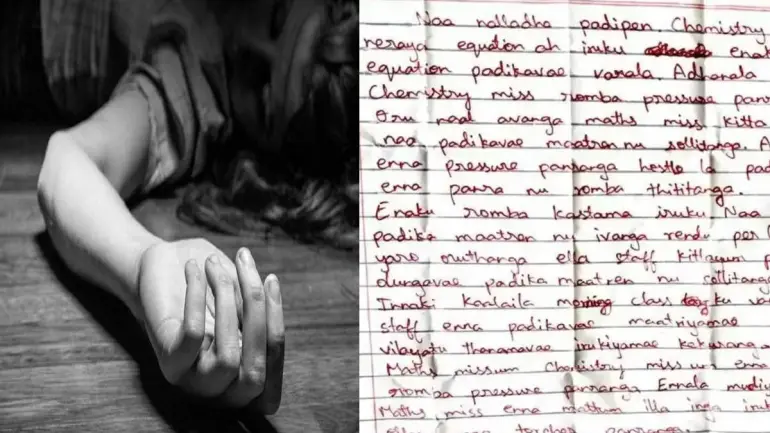 Naa nalladha padipen. Chemistry
neraya equation ah iruku enak
equation padikavae varala. Adhanala
Chemistry miss romba pressure pan
Oru naal avanga maths miss kitta
naa padikavae maatren nu sollitanga. A
enna pressure panranga hostle la pad
enna panra nu romba thititanga.
Enaku romba kastama iruku. Naa
padika maatren nu ivanga rendu per
yaro outhanga ella staff kitlayum
olungavae padika maatren nu sollitang
Innaki kaalaila morning class ku va
staff enna padikavae maatriyamae
vilayatu thanamavae irukiyamae kekurang
Maths missum Chemistry miss um enna
romba pressure panranga Ennala mudiy
Maths miss enna mattum illa inga iruk
torcher panranga